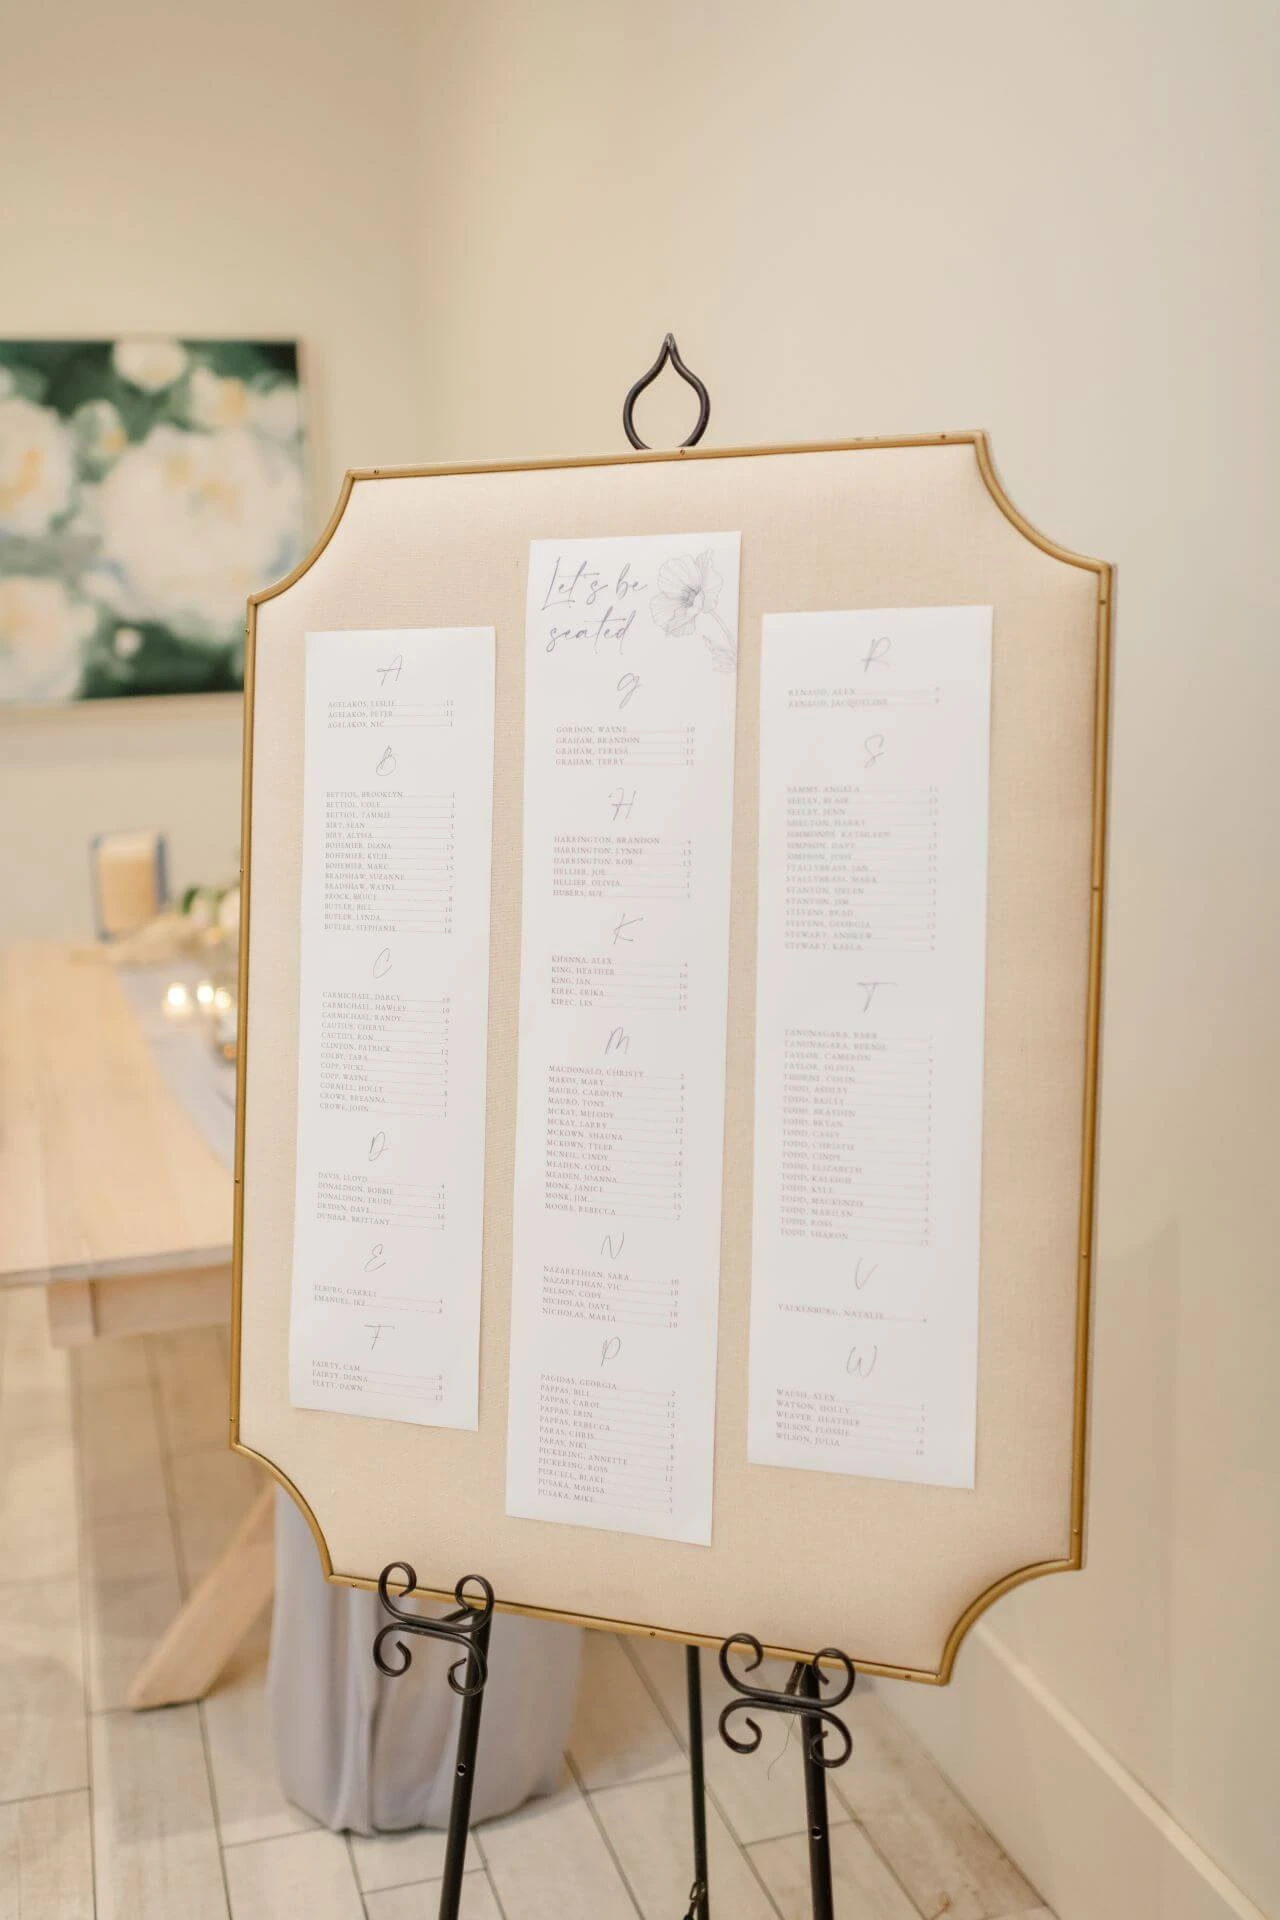 A
AGELAKOS, LESLIE 11
AGELAKOS, PETER 11
AGELAKOS, NIC 1
B
BETTIOL, BROOKLYN 1
BETTIOL, COLE 1
BETTIOL, TAMMIE 6
BIRT, SEAN 1
BIRT, ALYSSA 5
BOHEMIER, DIANA 15
BOHEMIER, KYLIE 4
BOHEMIER, MARC 15
BRADSHAW, SUZANNE 7
BRADSHAW, WAYNE 7
BROCK, BRUCE 8
BUTLER, BILL 16
BUTLER, LYNDA 16
BUTLER, STEPHANIE 14
C
CARMICHAEL, DARCY 10
CARMICHAEL, HAWLEY 10
CARMICHAEL, RANDY 6
CAUTIUS, CHERYL 7
CAUTIUS, RON 7
CLINTON, PATRICK 12
COLBY, TARA 5
COPP, VICKI 7
COPP, WAYNE 7
CORNELL, HOLLY 8
CROWE, BREANNA 1
CROWE, JOHN 1
D
DAVIS, LLOYD 4
DONALDSON, BOBBIE 11
DONALDSON, TRUDI 11
DRYDEN, DAVE 16
DUNBAR, BRITTANY 2
E
ELBURG, GARRET 4
EMANUEL, IKE 8
F
FAIRTY, CAM 8
FAIRTY, DIANA 8
FLETT, DAWN 13
Let's be
seated
G
GORDON, WAYNE 10
GRAHAM, BRANDON 11
GRAHAM, TERESA 11
GRAHAM, TERRY 11
H
HARRINGTON, BRANDON 4
HARRINGTON, LYNNE 13
HARRINGTON, ROB 13
HELLIER, JOE 2
HELLIER, OLIVIA 1
HUBERS, SUE
K
KHANNA, ALEX 4
KING, HEATHER 16
KING, JAN 16
KIREC, ERIKA 15
KIREC, LES 15
M
MACDONALD, CHRISTY 2
MAKOS, MARY 8
MAURO, CAROLYN 3
MAURO, TONY 3
MCKAY, MELODY 12
MCKAY, LARRY 12
MCKOWN, SHAUNA 1
MCKOWN, TYLER 4
MCNEIL, CINDY 16
MLADEN, COLIN 5
MLADEN, JOANNA 5
MONK, JANICE 15
MONK, JIM 15
MOORE, REBECCA 2
N
NAZARETHIAN, SARA 10
NAZARETHIAN, VIC 10
NELSON, CODY 2
NICHOLAS, DAVE 10
NICHOLAS, MARIA 10
P
PAGIDAS, GEORGIA 2
PAPPAS, BILL 12
PAPPAS, CAROL 12
PAPPAS, ERIN 9
PAPPAS, REBECCA 9
PARAS, CHRIS 8
PARAS, NIKI 8
PICKERING, ANNETTE 12
PICKERING, ROSS 12
PURCELL, BLAKE 2
PUSAKA, MARISA
PUSAKA, MIKE
R
RENAUD, ALEX 9
RENAUD, JACQUELINE 9
S
SAMMY, ANGELA
SEELEY, BLAIR
SEELEY, JENN
SHELTON, HARRY
SIMMONDS, KATHLEEN
SIMPSON, DAVE
SIMPSON, JOSH
STALLYBRASS, JAN
STALLYBRASS, MARK
STANTON, HELEN
STANTON, JIM
STEVENS, BRAD
STEVENS, GEORGIA
STEWART, ANDREW
STEWART, KAELA
T
TANUNAGARA, BARB
TANUNAGARA, BERNIE
TAYLOR, CAMERON
TAYLOR, OLIVIA
THORNE, COLIN
TODD, ASHLEY
TODD, BAILLY
TODD, BRAYDEN
TODD, BRYAN
TODD, CASEY
TODD, CHRISTIE
TODD, CINDY
TODD, ELIZABETH
TODD, KALEIGH
TODD, KYLE
TODD, MACKENZIE
TODD, MARILYN
TODD, ROSS
TODD, SHARON
V
VALKENBURG, NATALIE
W
WALSH, ALEX
WATSON, HOLLY
WEAVER, HEATHER
WILSON, FLOSSIE
WILSON, JULIA